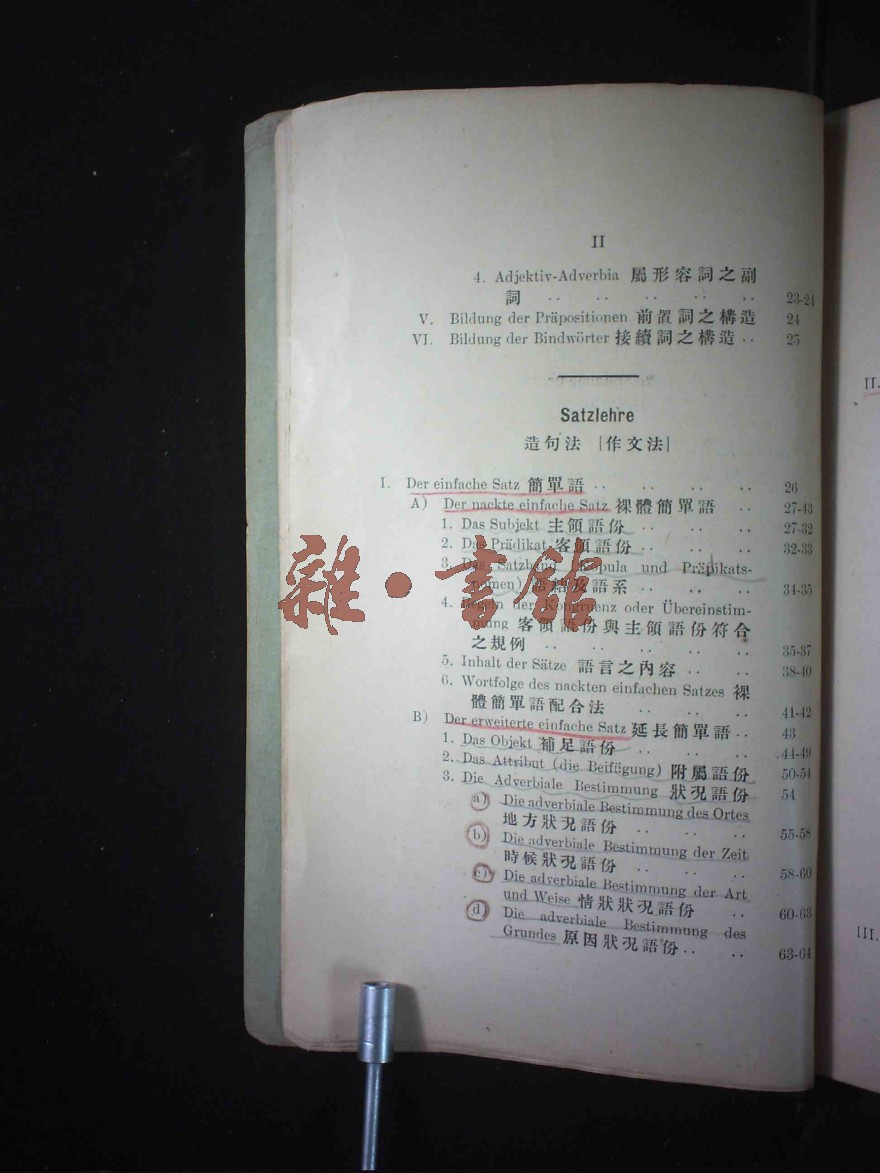 II
4. Adjektiv-Adverbia 屬形容詞之副
詞 .. .. .. .. .. 23-24
V. Bildung der Präpositionen 前置詞之構造 24
VI. Bildung der Bindwörter 接續詞之構造 .. 25
Satzlehre
造句法 [作文法]
I. Der einfache Satz 簡單語 .. .. .. .. 26
A) Der nackte einfache Satz 裸體簡單語 .. 27-43
1. Das Subjekt 主領語份 .. .. .. 27-32
2. Das Prädikat 客領語份 .. .. .. 32-33
3. Das Satzband (Kopula und Präpikats-
namen) 語結及語系 .. .. .. 34-35
4. Regeln der Kongruenz oder Übereinstim-
mung 客領語份與主領語份符合
之規例 .. .. .. .. .. 35-37
5. Inhalt der Sätze 語言之內容 .. .. 38-40
6. Wortfolge des nackten einfachen Satzes 裸
體簡單語配合法 .. .. .. 41-42
B) Der erweiterte einfache Satz 延長簡單語 .. 43
1. Das Objekt 補足語份 .. .. .. 44-49
2. Das Attribut (die Beifügung) 附屬語份 50-54
3. Die Adverbiale Bestimmung 狀況語份 54
a) Die adverbiale Bestimmung des Ortes
地方狀況語份 .. .. .. 55-58
b) Die adverbiale Bestimmung der Zeit
時候狀況語份 .. .. .. 58-60
c) Die adverbiale Bestimmung der Art
und Weise 情狀狀況語份 .. 60-63
d) Die adverbiale Bestimmung des
Grundes 原因狀況語份 .. .. 63-64
雜·書館
II.
III.